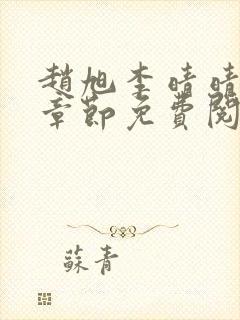 趙旭李晴晴
章節免費閱
蘇青